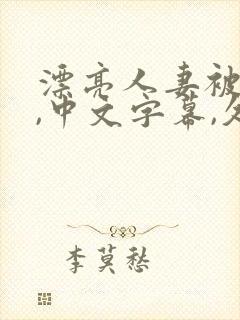 漂亮人妻被
,中文字幕,久
李莫愁